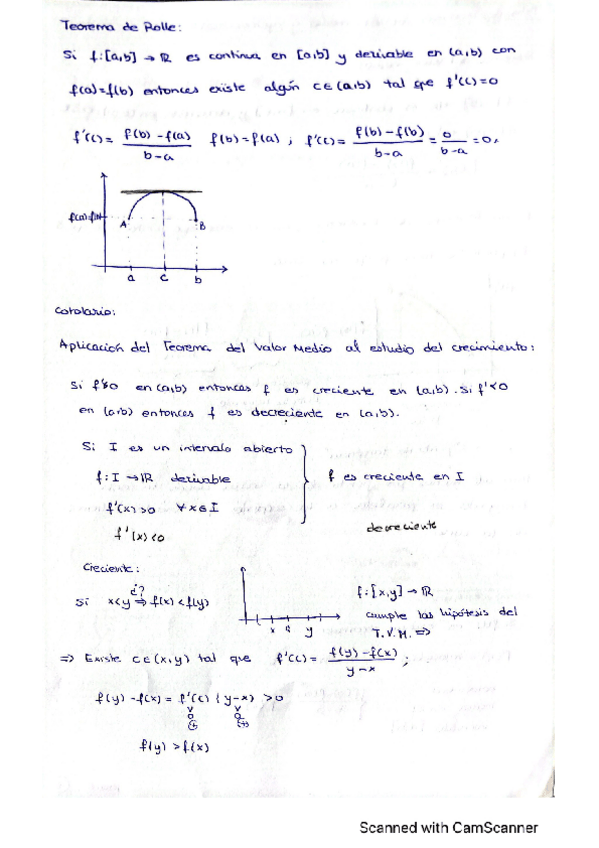 Teorema de Rolle:
Si f:[a,b] → ℝ es continua en [a,b] y derivable en (a,b) con
f(a)=f(b) entonces existe algún c∈(a,b) tal que f'(c)=0
f'(c)= f(b)-f(a) / b-a   f(b)=f(a) ; f'(c)= f(b)-f(b) / b-a = 0 / b-a = 0.
f(a)=f(b)
A B
a c b
Corolario:
Aplicación del Teorema del Valor Medio al estudio del crecimiento:
Si f'>0 en (a,b) entonces f es creciente en (a,b). Si f'<0
en (a,b) entonces f es decreciente en (a,b).
Si I es un intervalo abierto
f: I → ℝ derivable } f es creciente en I
f'(x)>0 ∀x∈I
f'(x)<0 decreciente
Creciente:
Si x<y ¿?⇒ f(x)<f(y)
x c y
f:[x,y] → ℝ
cumple las hipótesis del
T.V.M. ⇒
⇒ Existe c∈(x,y) tal que f'(c)= f(y)-f(x) / y-x ;
f(y)-f(x) = f'(c) (y-x) >0
v v
0 0
⊕ ⊕
f(y) > f(x)
Scanned with CamScanner